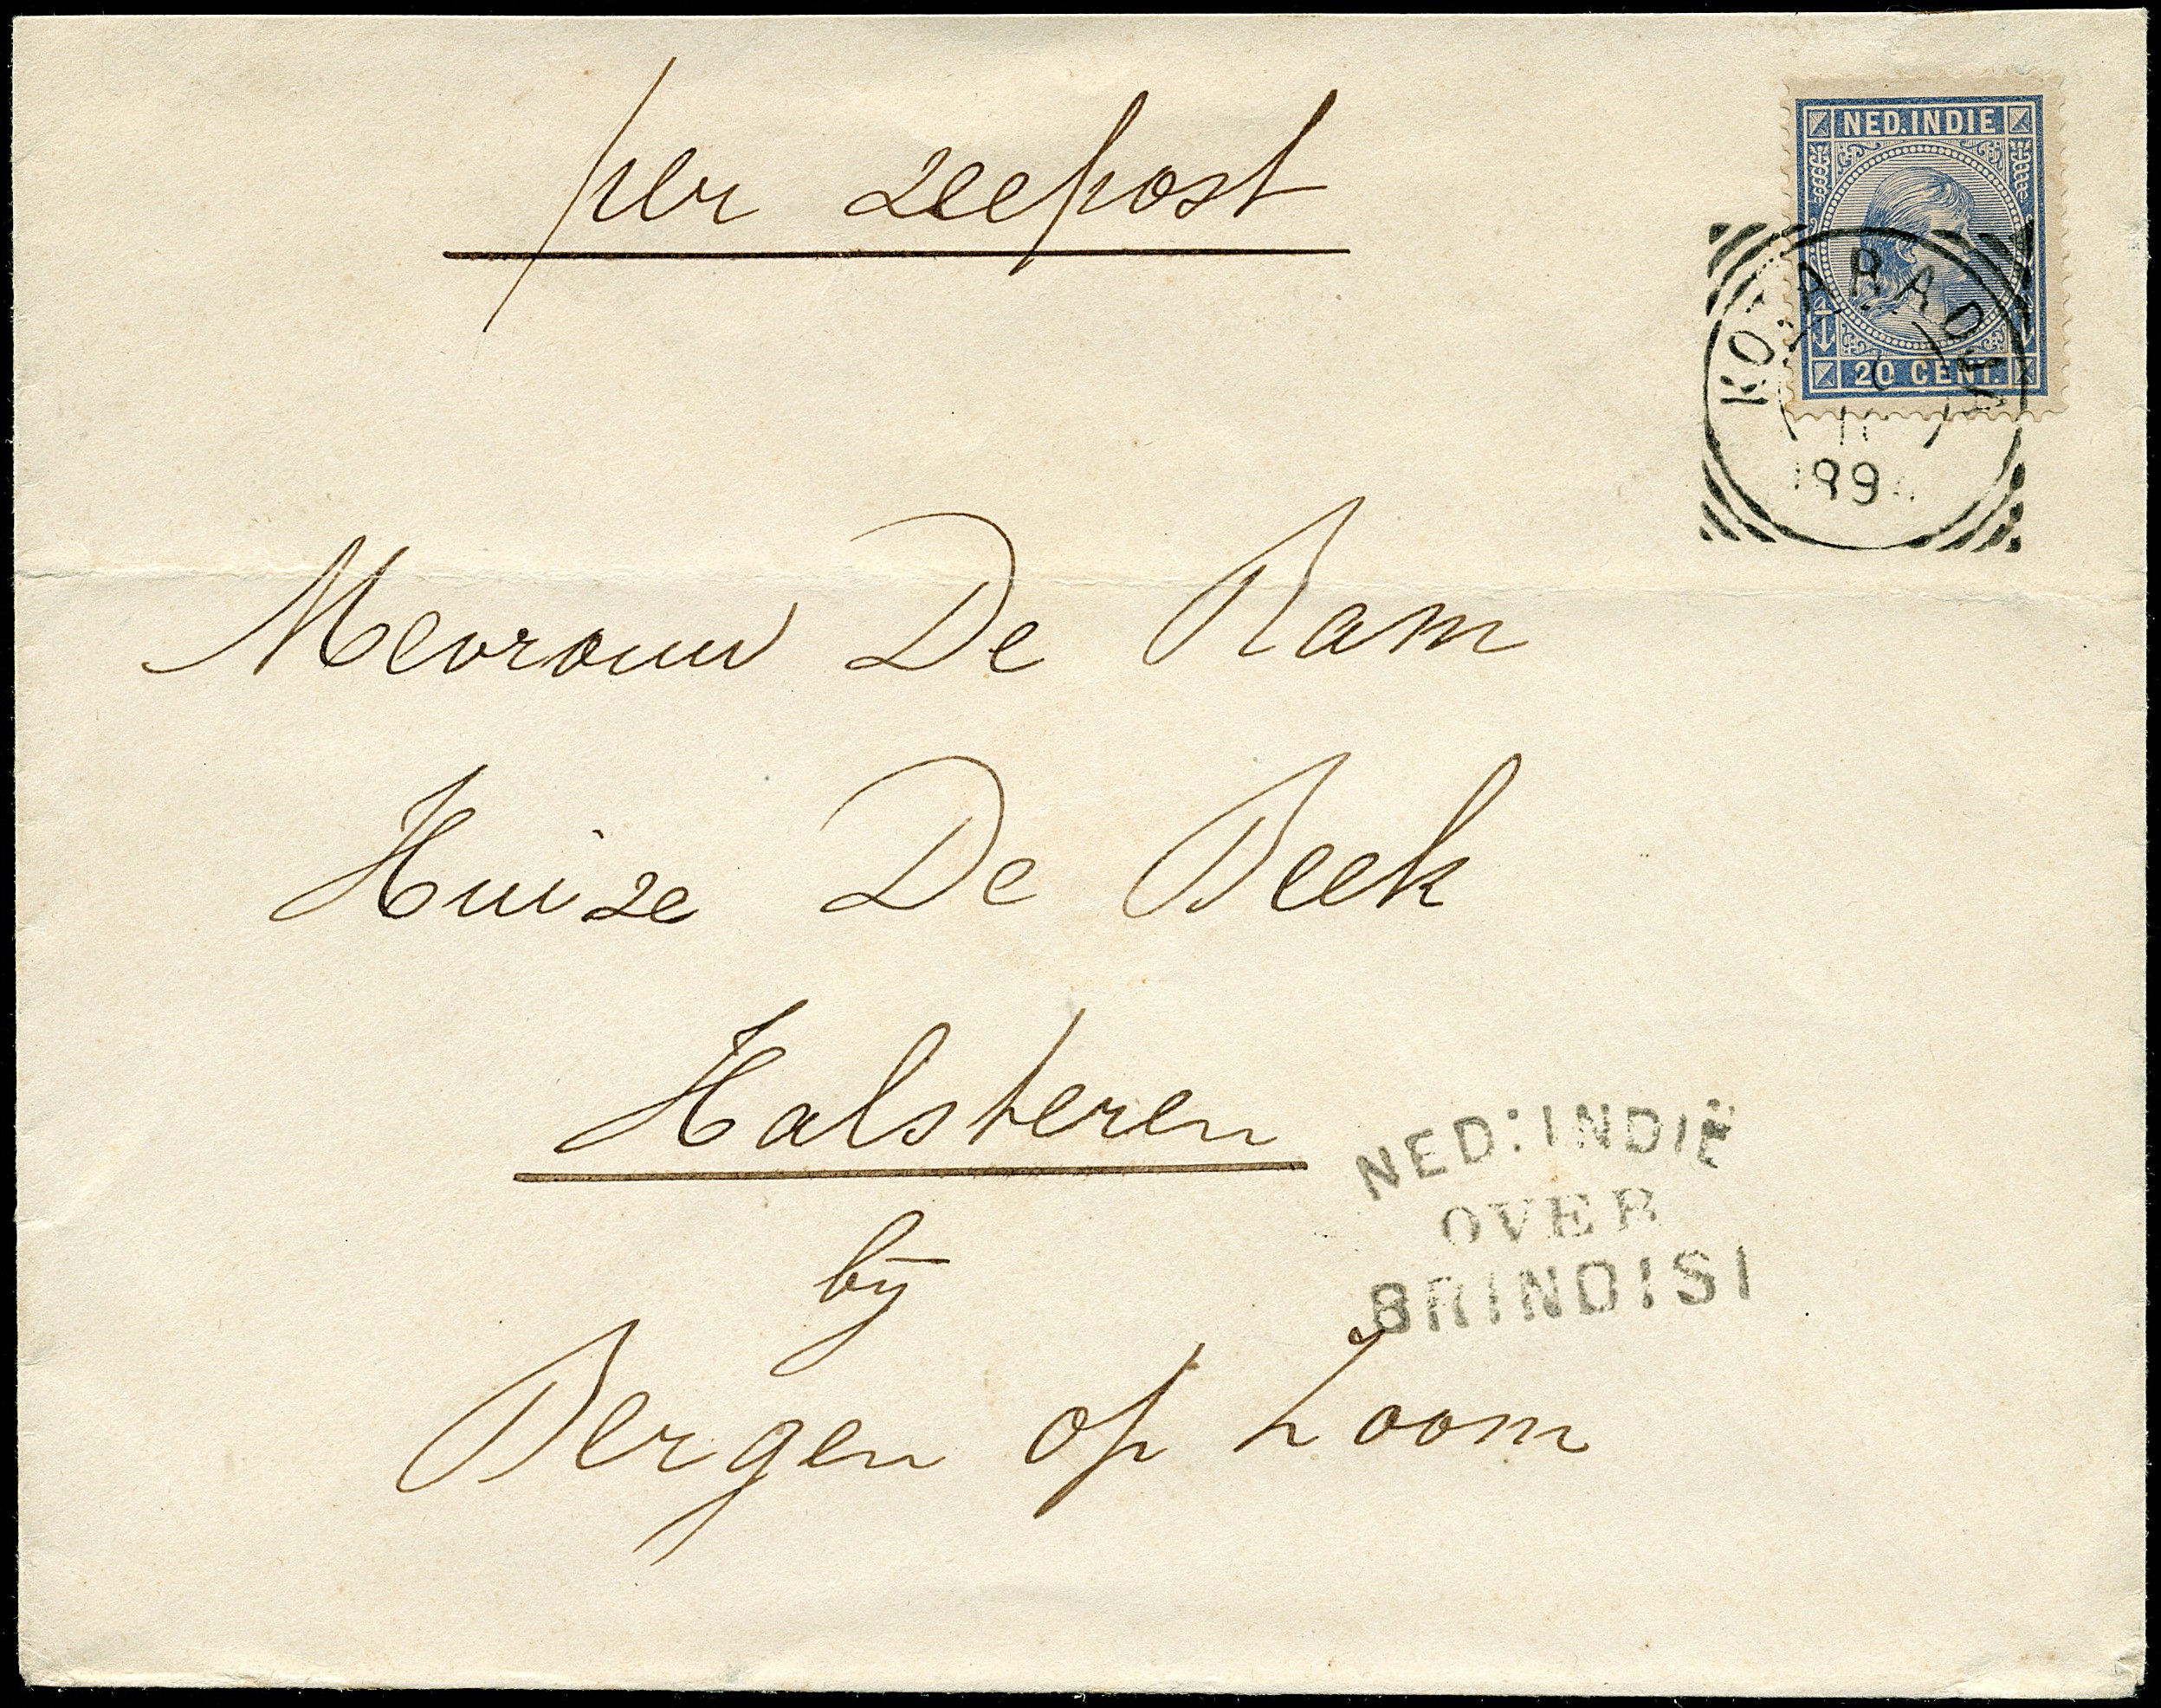 per zeepost
NED. INDIE
20 CENT.
KOTARADJA
11
Mevrouw De Ram
Huize De Beek
Halsteren
bij
Bergen op Zoom
NED: INDIË
OVER
BRINDISI